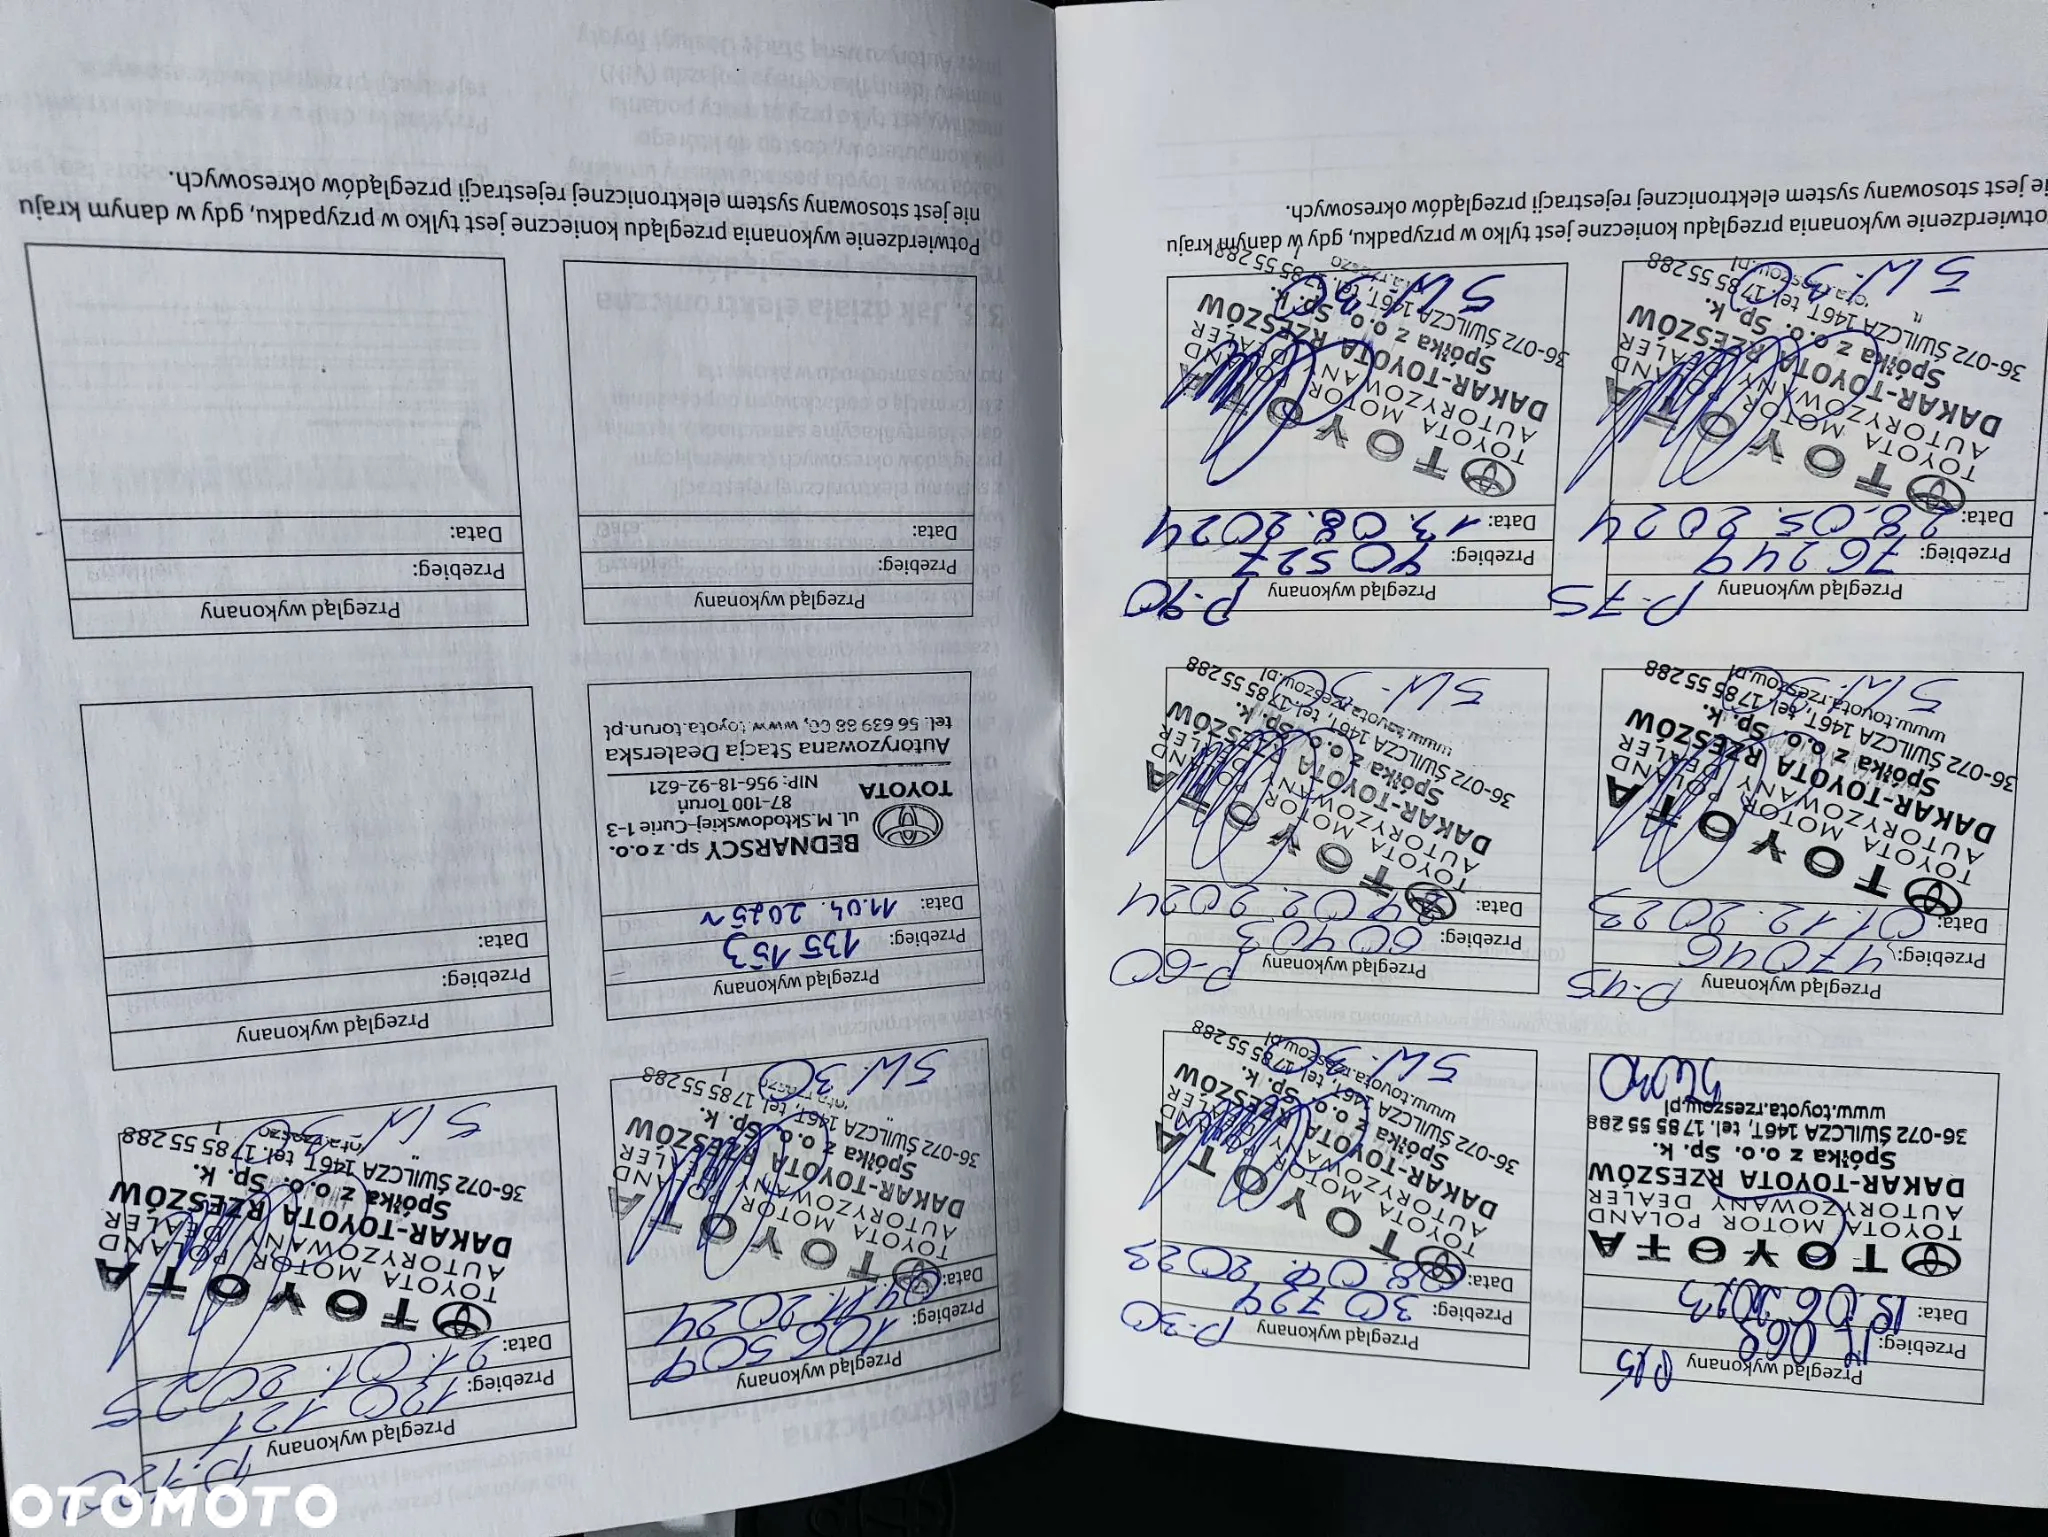 Przegląd wykonany P15
Przebieg:
Data:
TOYOTA
TOYOTA MOTOR POLAND
AUTORYZOWANY DEALER
DAKAR-TOYOTA RZESZÓW
Spółka z o.o. Sp. k.
36-072 ŚWILCZA 146T, tel. 17 85 55 288
www.toyota.rzeszow.pl
5W30
Przegląd wykonany P-30
Przebieg: 30724
Data:
TOYOTA
TOYOTA MOTOR POLAND
AUTORYZOWANY DEALER
DAKAR-TOYOTA RZESZÓW
Spółka z o.o. Sp. k.
36-072 ŚWILCZA 146T, tel. 17 85 55 288
www.toyota.rzeszow.pl
5W-30
Przegląd wykonany P-45
Przebieg: 47046
Data: 01.12.2023
TOYOTA
TOYOTA MOTOR POLAND
AUTORYZOWANY DEALER
DAKAR-TOYOTA RZESZÓW
Spółka z o.o. Sp. k.
36-072 ŚWILCZA 146T, tel. 17 85 55 288
www.toyota.rzeszow.pl
5W-30
Przegląd wykonany P-60
Przebieg: 60403
Data:
TOYOTA
TOYOTA MOTOR POLAND
AUTORYZOWANY DEALER
DAKAR-TOYOTA RZESZÓW
Spółka z o.o. Sp. k.
36-072 ŚWILCZA 146T, tel. 17 85 55 288
www.toyota.rzeszow.pl
5W-30
Przegląd wykonany P-75
Przebieg: 76244
Data: 28.05.2024
TOYOTA
TOYOTA MOTOR POLAND
AUTORYZOWANY DEALER
DAKAR-TOYOTA RZESZÓW
Spółka z o.o. Sp. k.
36-072 ŚWILCZA 146T, tel. 17 85 55 288
5W-30
Przegląd wykonany P-90
Przebieg: 90527
Data: 13.08.2024
TOYOTA
TOYOTA MOTOR POLAND
AUTORYZOWANY DEALER
DAKAR-TOYOTA RZESZÓW
Spółka z o.o. Sp. k.
36-072 ŚWILCZA 146T, tel. 17 85 55 288
5W-30
Potwierdzenie wykonania przeglądu konieczne jest tylko w przypadku, gdy w danym kraju
nie jest stosowany system elektronicznej rejestracji przeglądów okresowych.
Przegląd wykonany
Przebieg: 106509
Data: 04.11.2024
TOYOTA
TOYOTA MOTOR POLAND
AUTORYZOWANY DEALER
DAKAR-TOYOTA RZESZÓW
Spółka z o.o. Sp. k.
36-072 ŚWILCZA 146T, tel. 17 85 55 288
5W-30
Przegląd wykonany P-120
Przebieg: 120121
Data: 21.01.2025
TOYOTA
TOYOTA MOTOR POLAND
AUTORYZOWANY DEALER
DAKAR-TOYOTA RZESZÓW
Spółka z o.o. Sp. k.
36-072 ŚWILCZA 146T, tel. 17 85 55 288
5W-30
Przegląd wykonany
Przebieg: 135 153
Data: 11.04.2025r
BEDNARSCY sp. z o.o.
ul. M.Skłodowskiej-Curie 1-3
87-100 Toruń
TOYOTA NIP: 956-18-92-621
Autoryzowana Stacja Dealerska
tel. 56 639 88 00, www.toyota.torun.pl
Przegląd wykonany
Przebieg:
Data:
Przegląd wykonany
Przebieg:
Data:
Przegląd wykonany
Przebieg:
Data:
Potwierdzenie wykonania przeglądu konieczne jest tylko w przypadku, gdy w danym kraju
nie jest stosowany system elektronicznej rejestracji przeglądów okresowych.
OTOMOTO